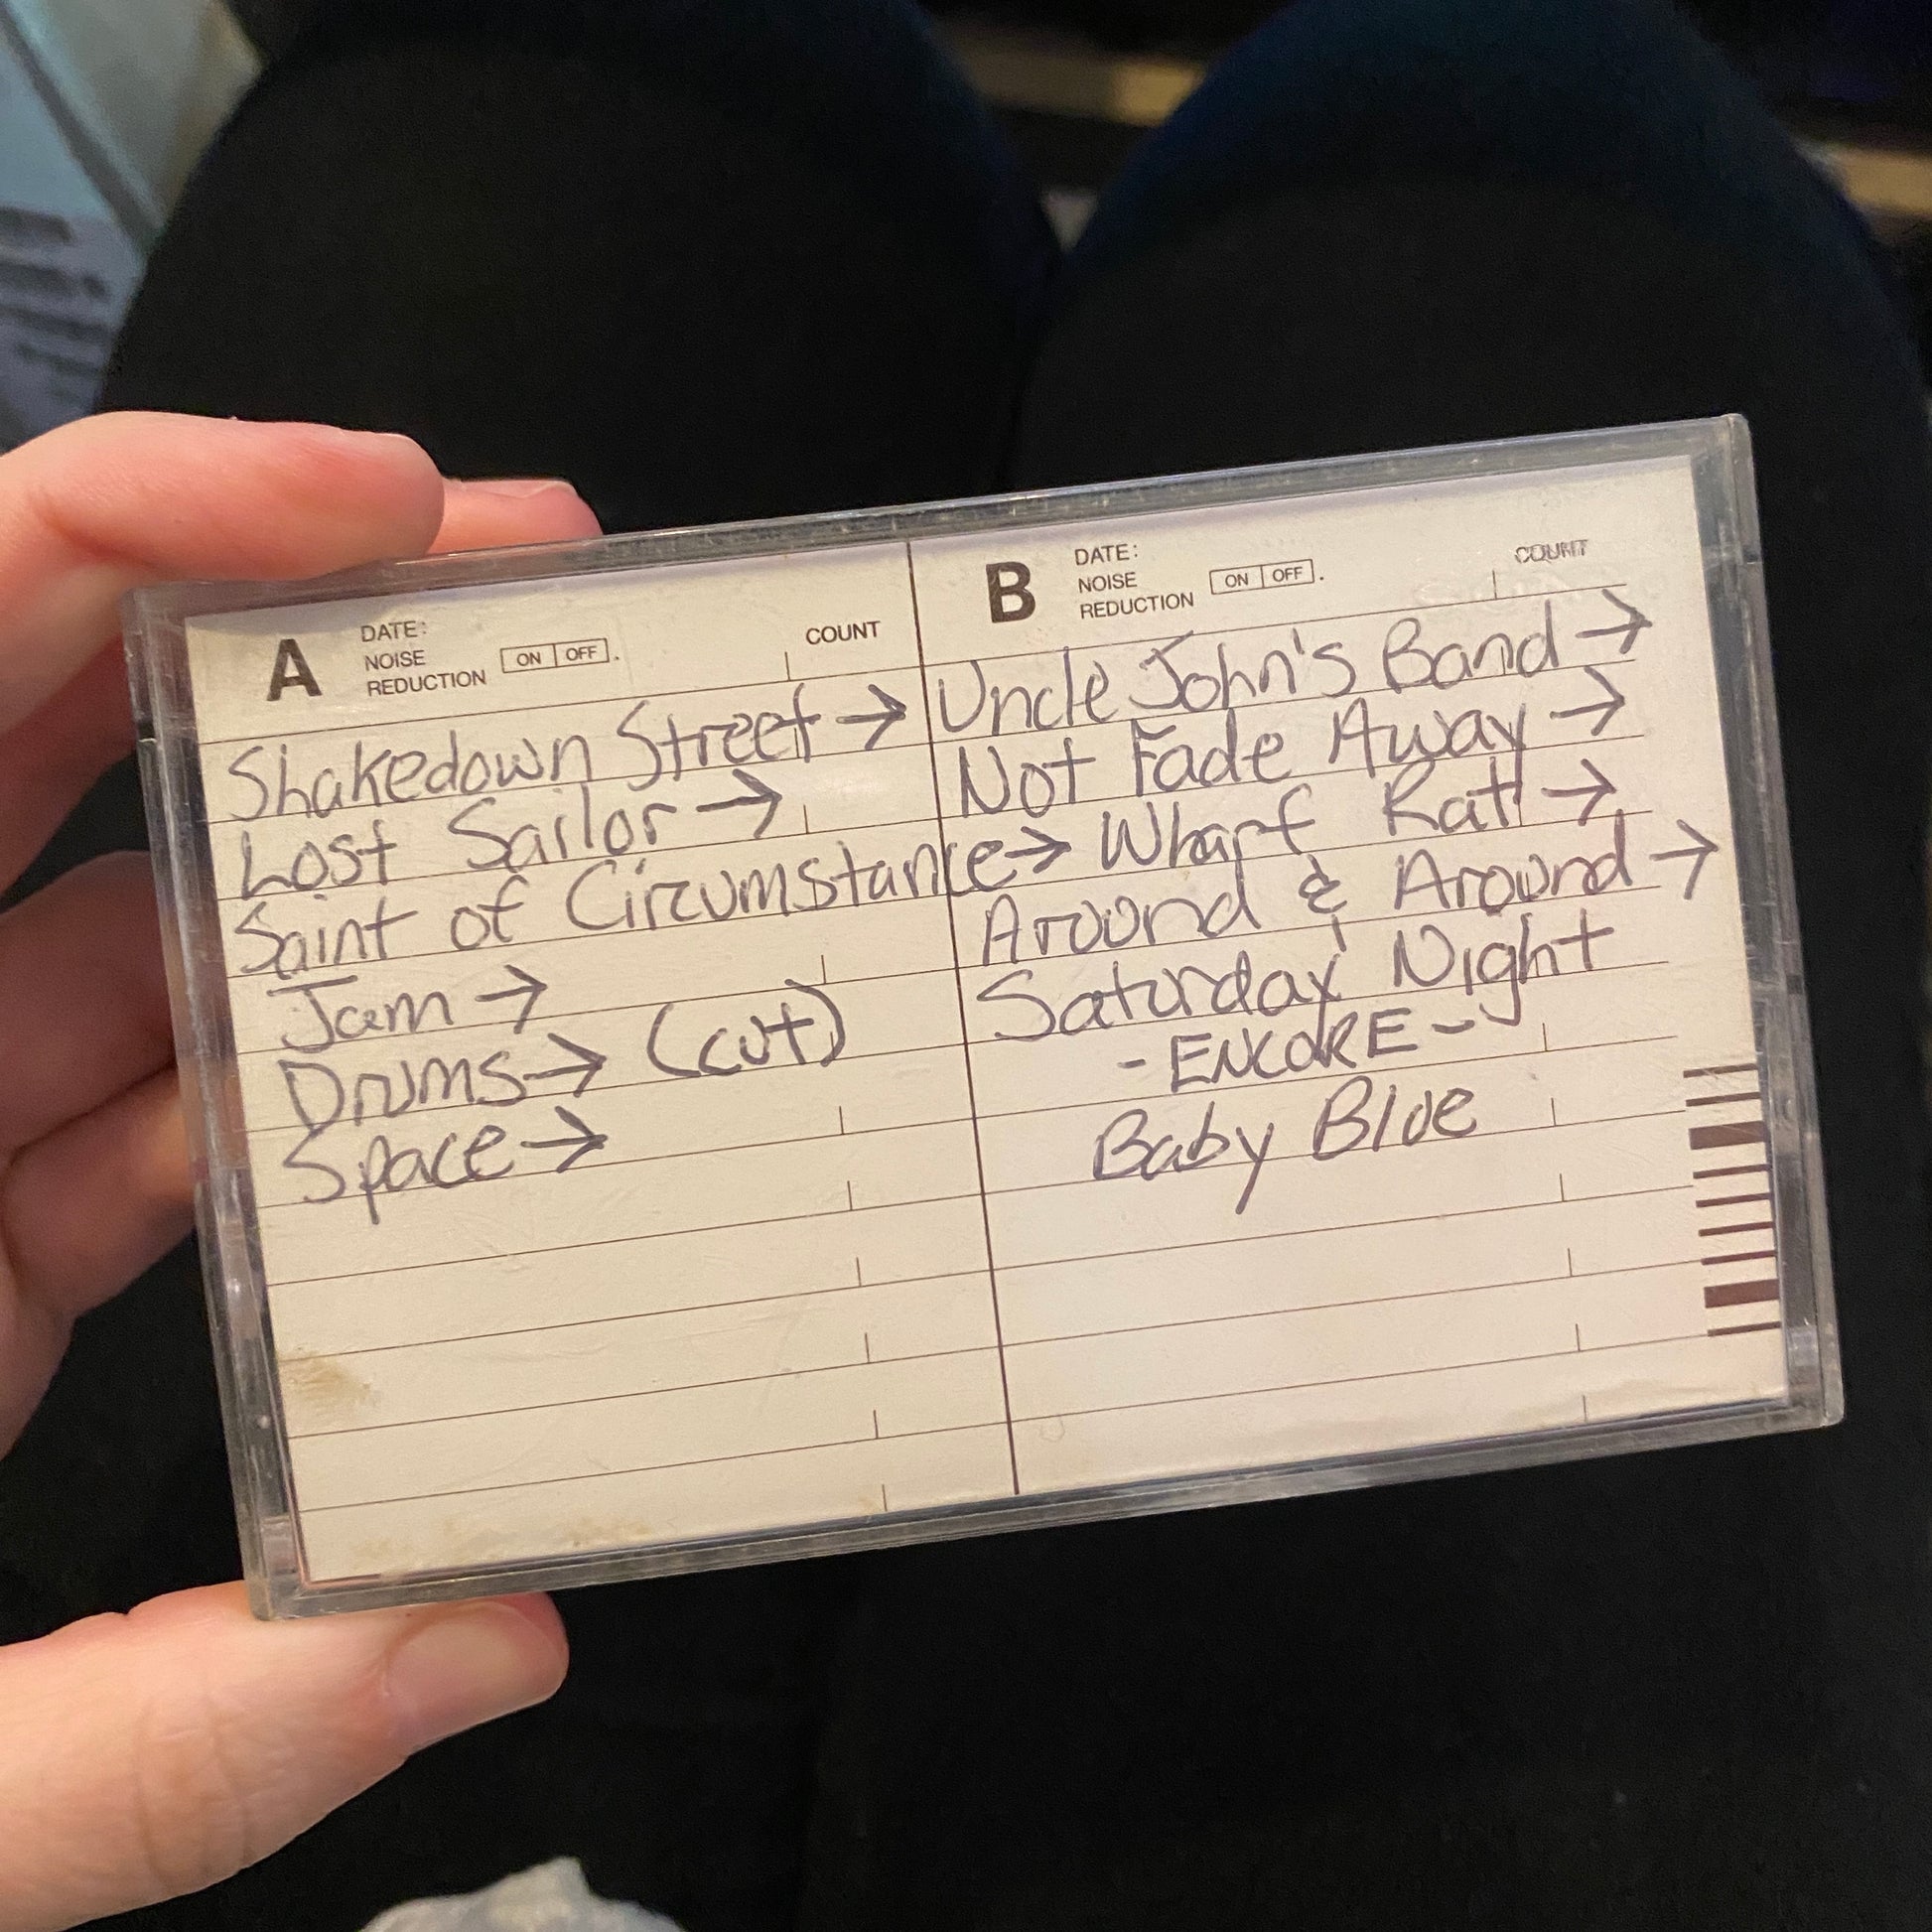 A
DATE:
NOISE
REDUCTION ON OFF.
COUNT
Shakedown Street →
Lost Sailor →
Saint of Circumstance →
Jam →
Drums → (cut)
Space →
B
DATE:
NOISE
REDUCTION ON OFF.
COUNT
Uncle John's Band →
Not Fade Away →
Wharf Rat →
Around & Around →
Saturday Night
- ENCORE -
Baby Blue